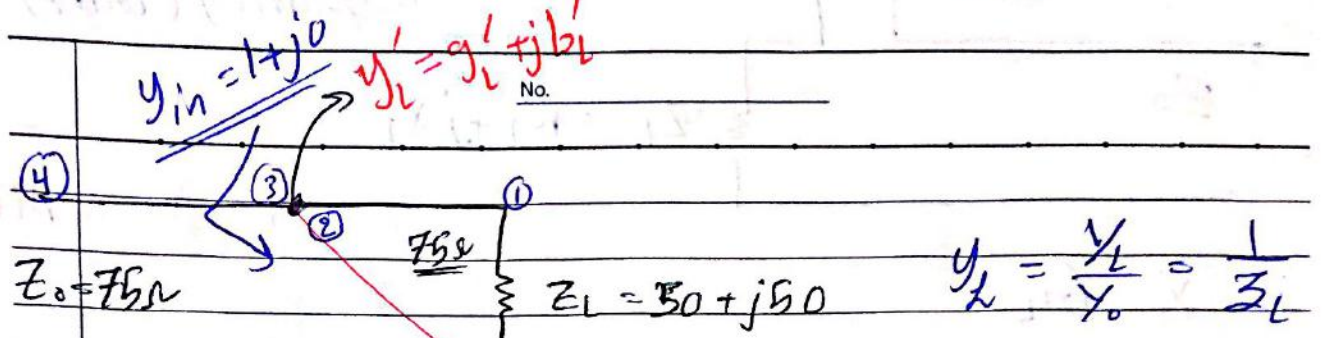 y_in = 1+j0
y'_L = g'_L + jb'_L
No.
④ ③ ② ①
75Ω
Z₀ = 75Ω
Z_L = 50 + j50
y_L = Y_L/Y₀ = 1/z_L